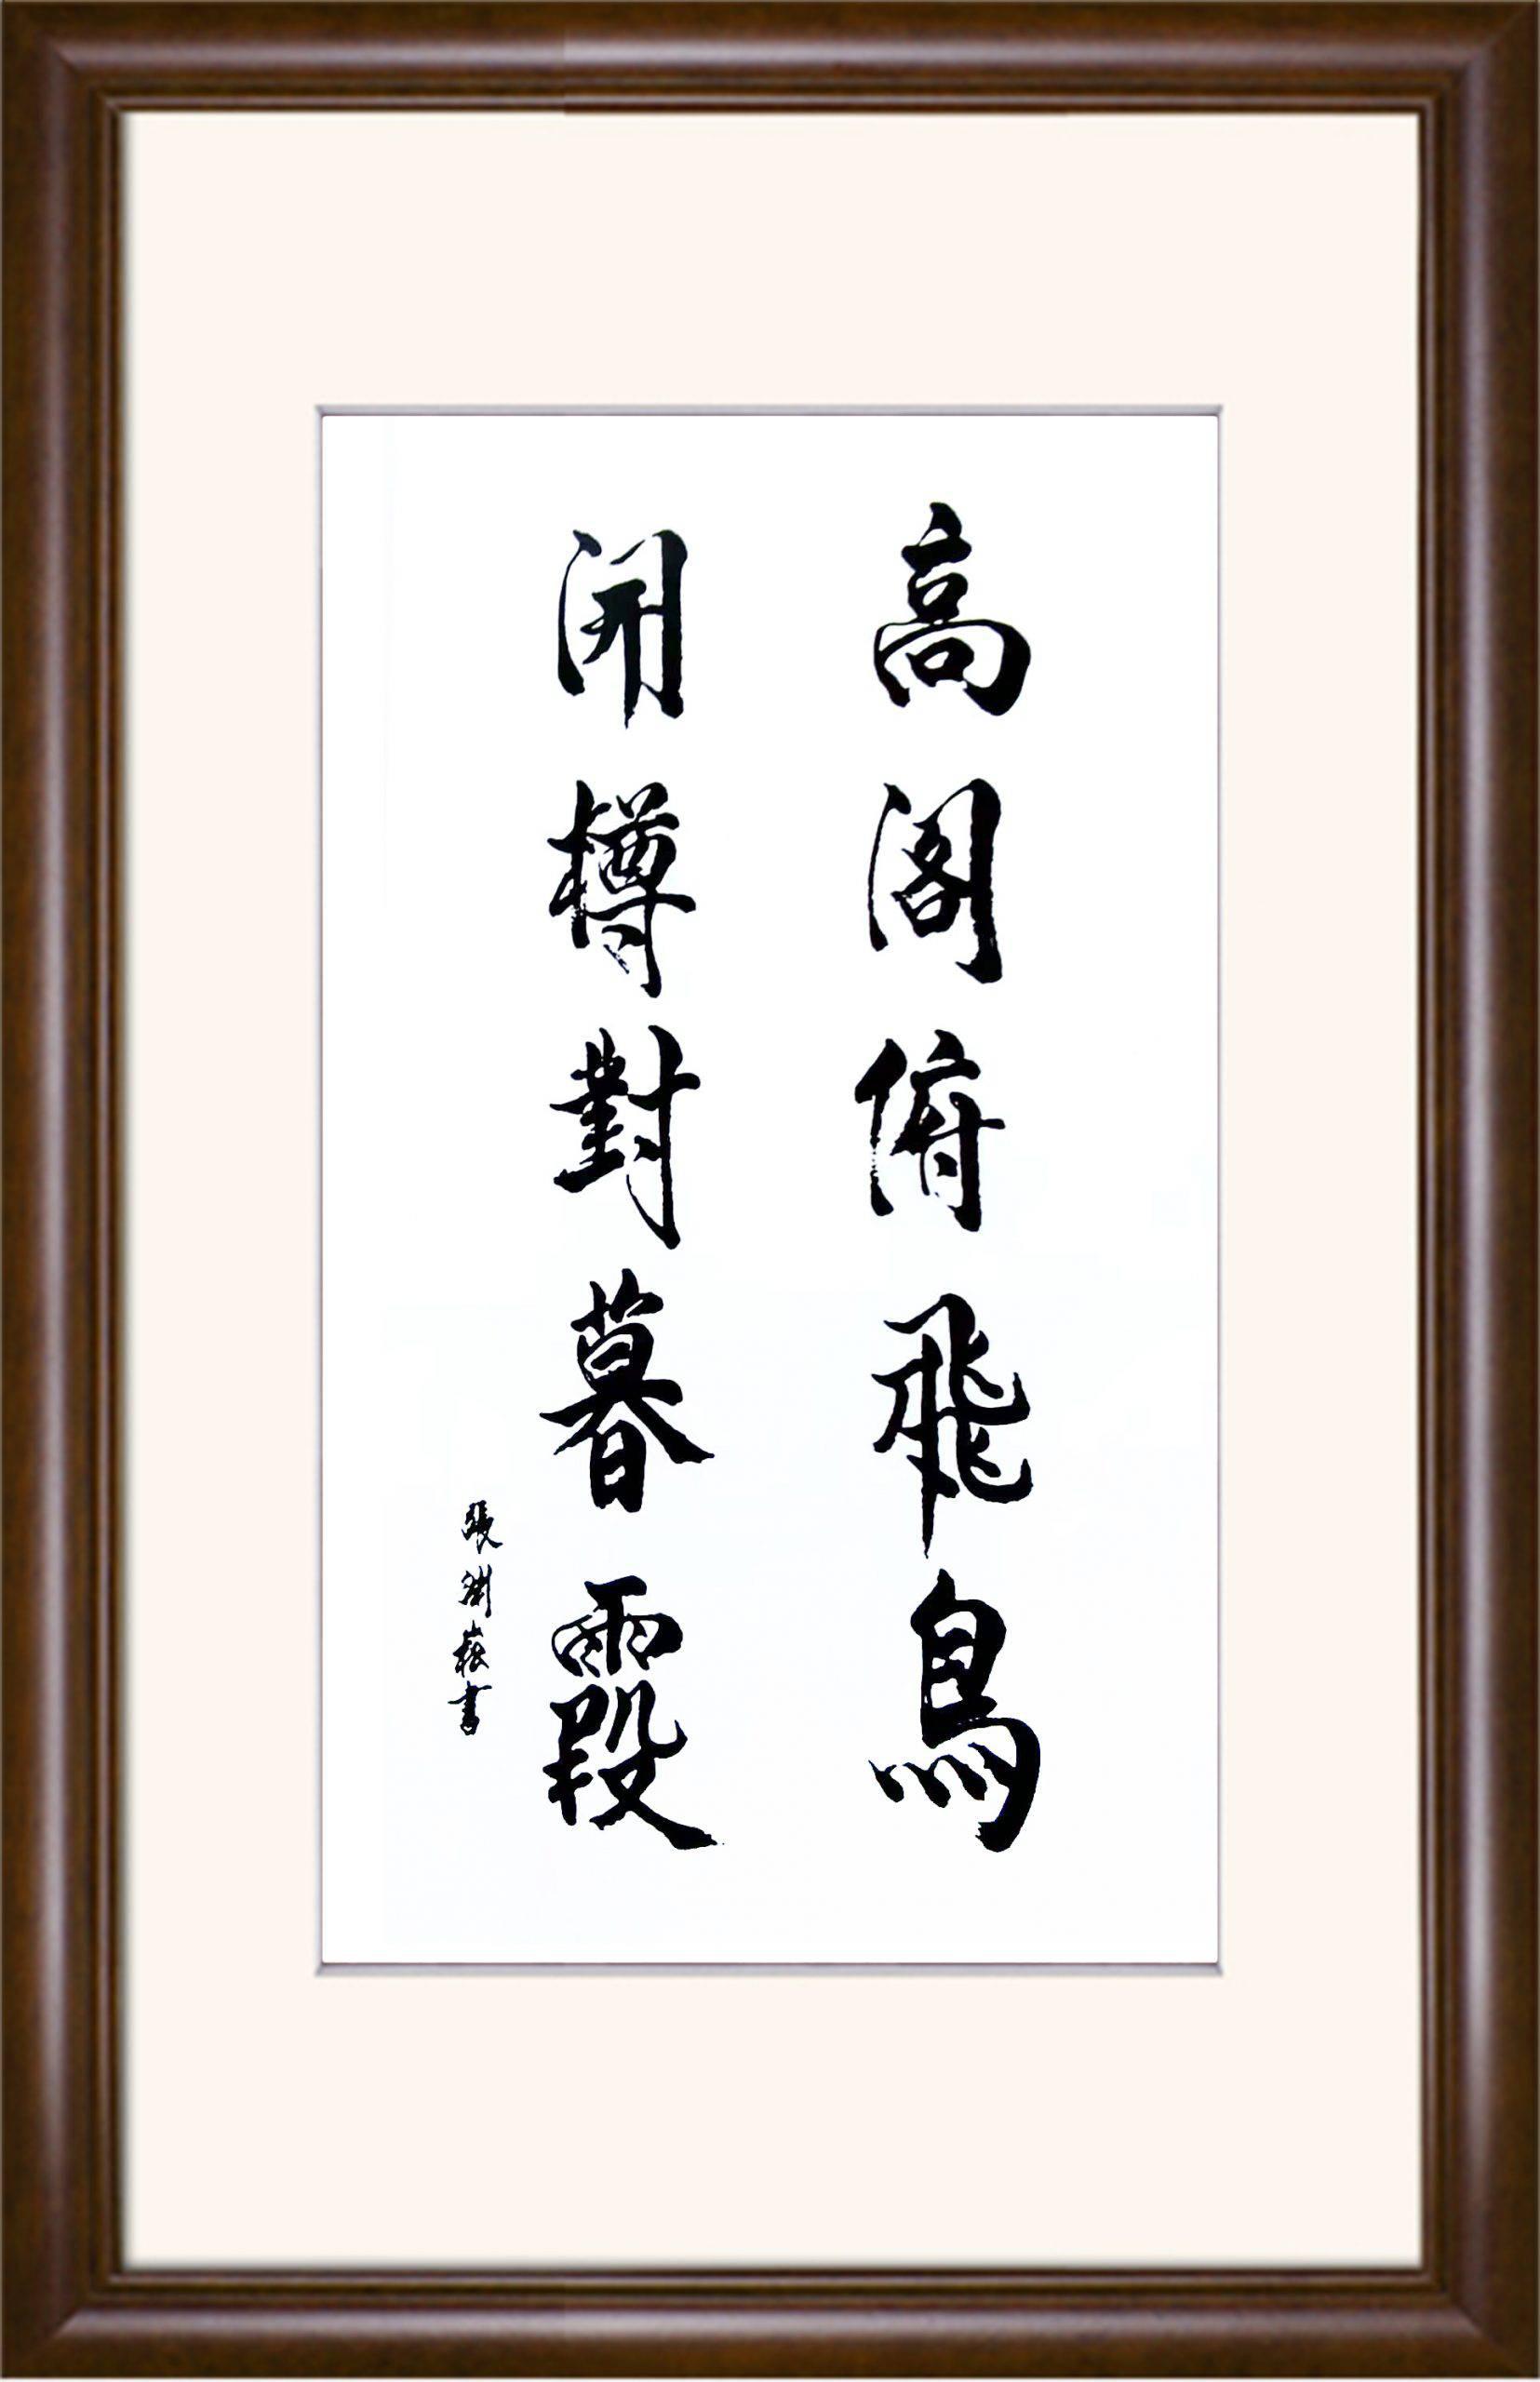 高閣俯飛鳥
開樽對暮霞
張書